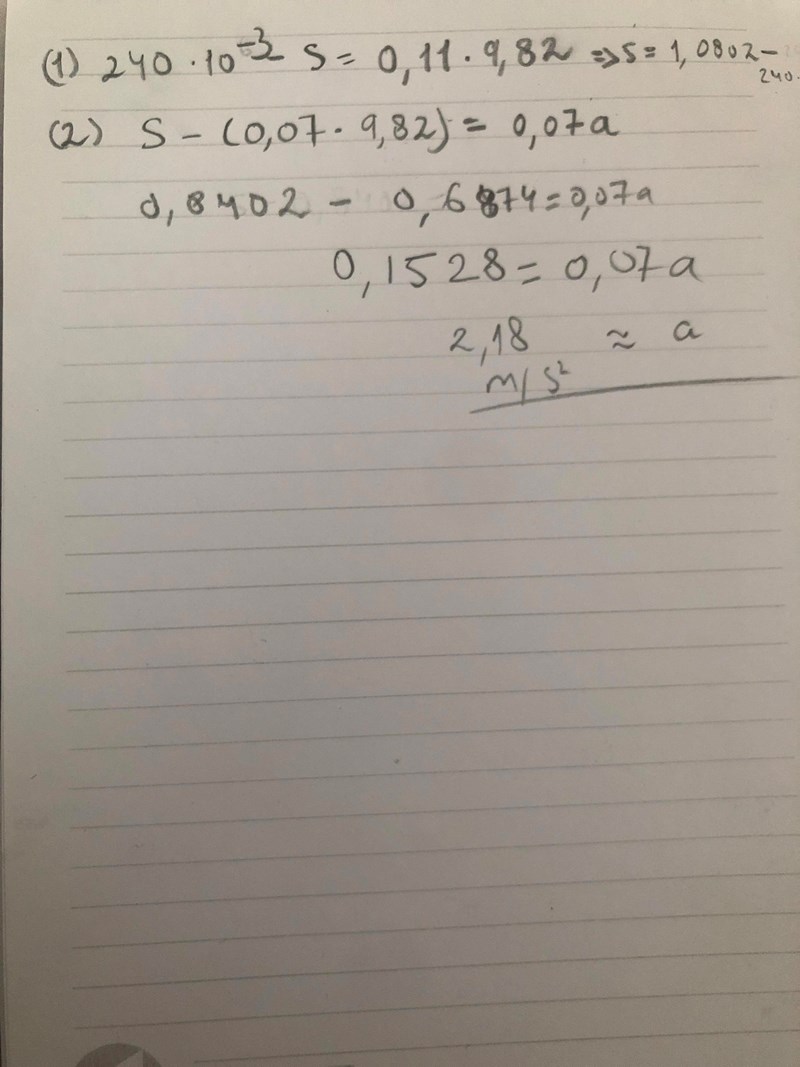 (1) 240 · 10⁻³ S = 0,11 · 9,82 => S = 1,0802 - 240.
(2) S - (0,07 · 9,82) = 0,07a
0,8402 - 0,6874 = 0,07a
0,1528 = 0,07a
2,18 ≈ a
m/s²